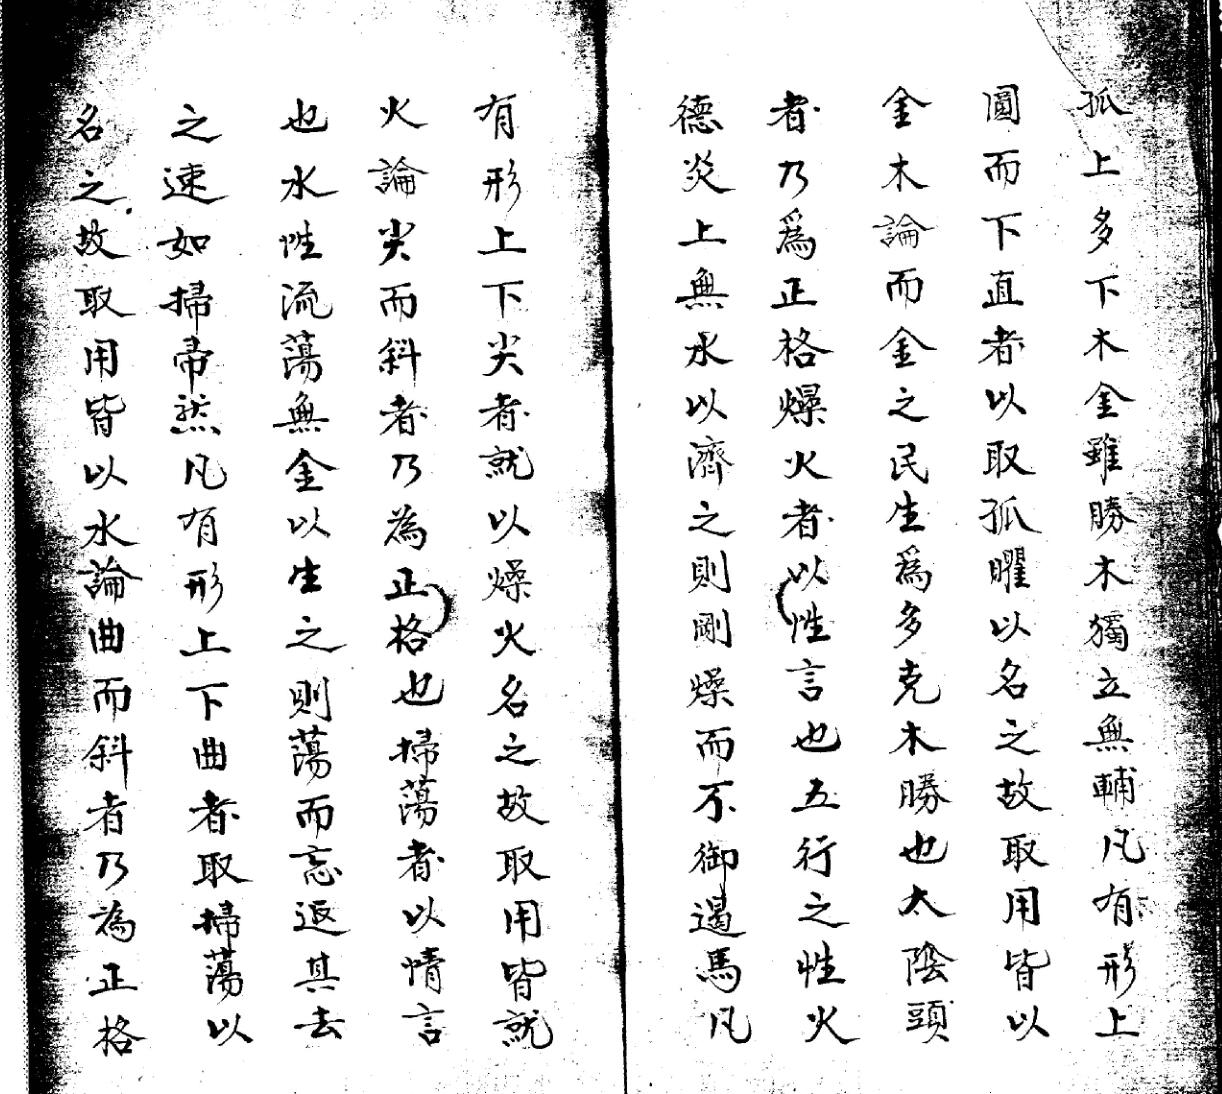 孤上多下木金雖勝木獨立無輔凡有形上
圓而下直者以取孤曜以名之故取用皆以
金木論而金之民生爲多克木勝也太陰頭
者乃爲正格燥火者以性言也五行之性火
德炎上無水以濟之則剛燥而不御遏馬凡
有形上下尖者就以燥火名之故取用皆就
火論尖而斜者乃為正格也掃蕩者以情言
也水性流蕩無金以生之則蕩而忘返其去
之速如掃帚然凡有形上下曲者取掃蕩以
名之故取用皆以水論曲而斜者乃為正格